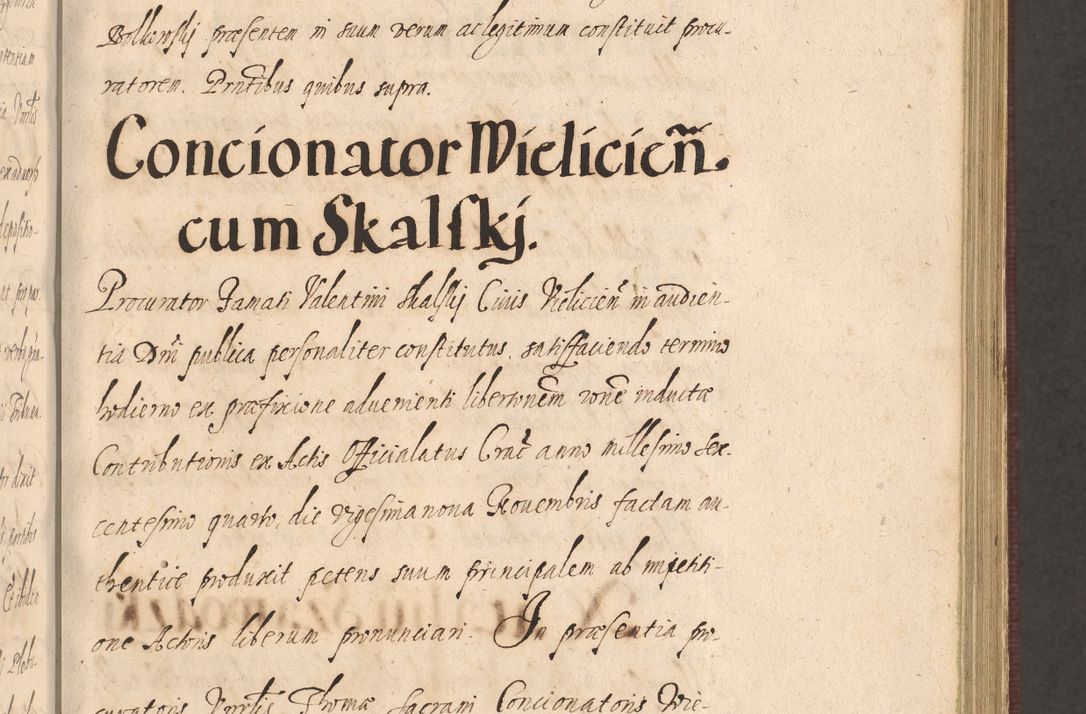 Bolkowskij præsentem in suum verum ac legitimum constituit procu-
ratorem. Prñtibus quibus supra.
Concionator Wielicieñ.
cum Skalskj.
Procurator Famati Valentini Skalskij Civis Vielicieñ in audien-
tia Dñi publica personaliter constitutus, satisfaciendo termino
hodierno ex præfixione advenienti libertonem rone inductæ
Contributionis ex Actis Officialatus Crac̃ anno millesimo sex-
centesimo quarto, die vigesima nona Novembris factam au-
thentice produxit petens suum principalem ab impetiti-
one Actoris liberum pronunciari. In præsentia pro-
curatoris Thomæ Sacrani Concionatoris Wie-